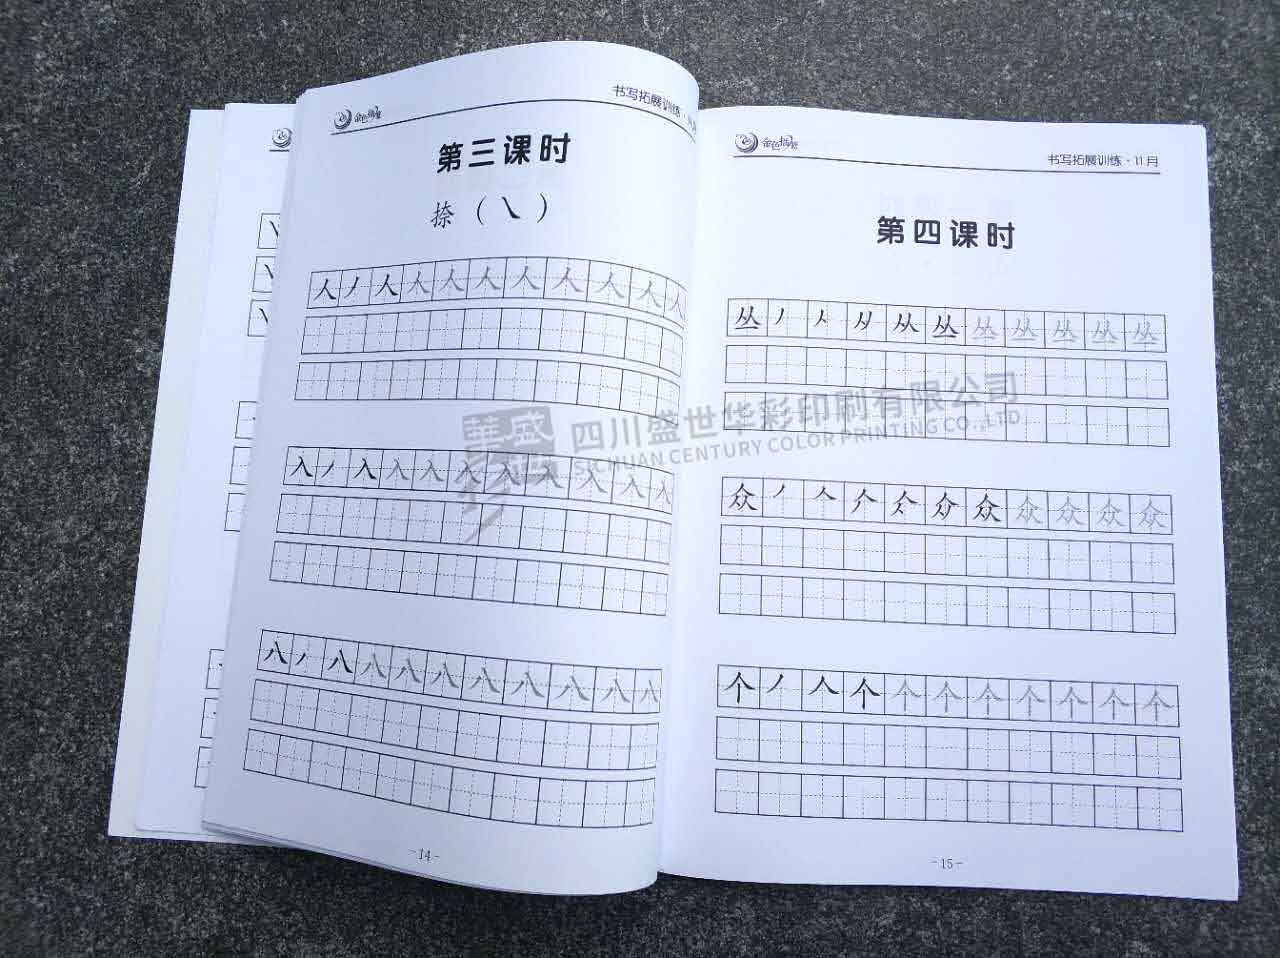 金色摇篮
书写拓展训练·
第三课时
捺（㇏）
人丿人人人人人人人人人
入丿入入入入入入入入入
八丿八八八八八八八八八
-14-
金色摇篮
书写拓展训练·11月
第四课时
丛丿人从丛丛丛丛丛丛
众丿人众众众众众
个丿人个个个个个个个个
-15-
華盛彩
四川盛世华彩印刷有限公司
SICHUAN CENTURY COLOR PRINTING CO.,LTD